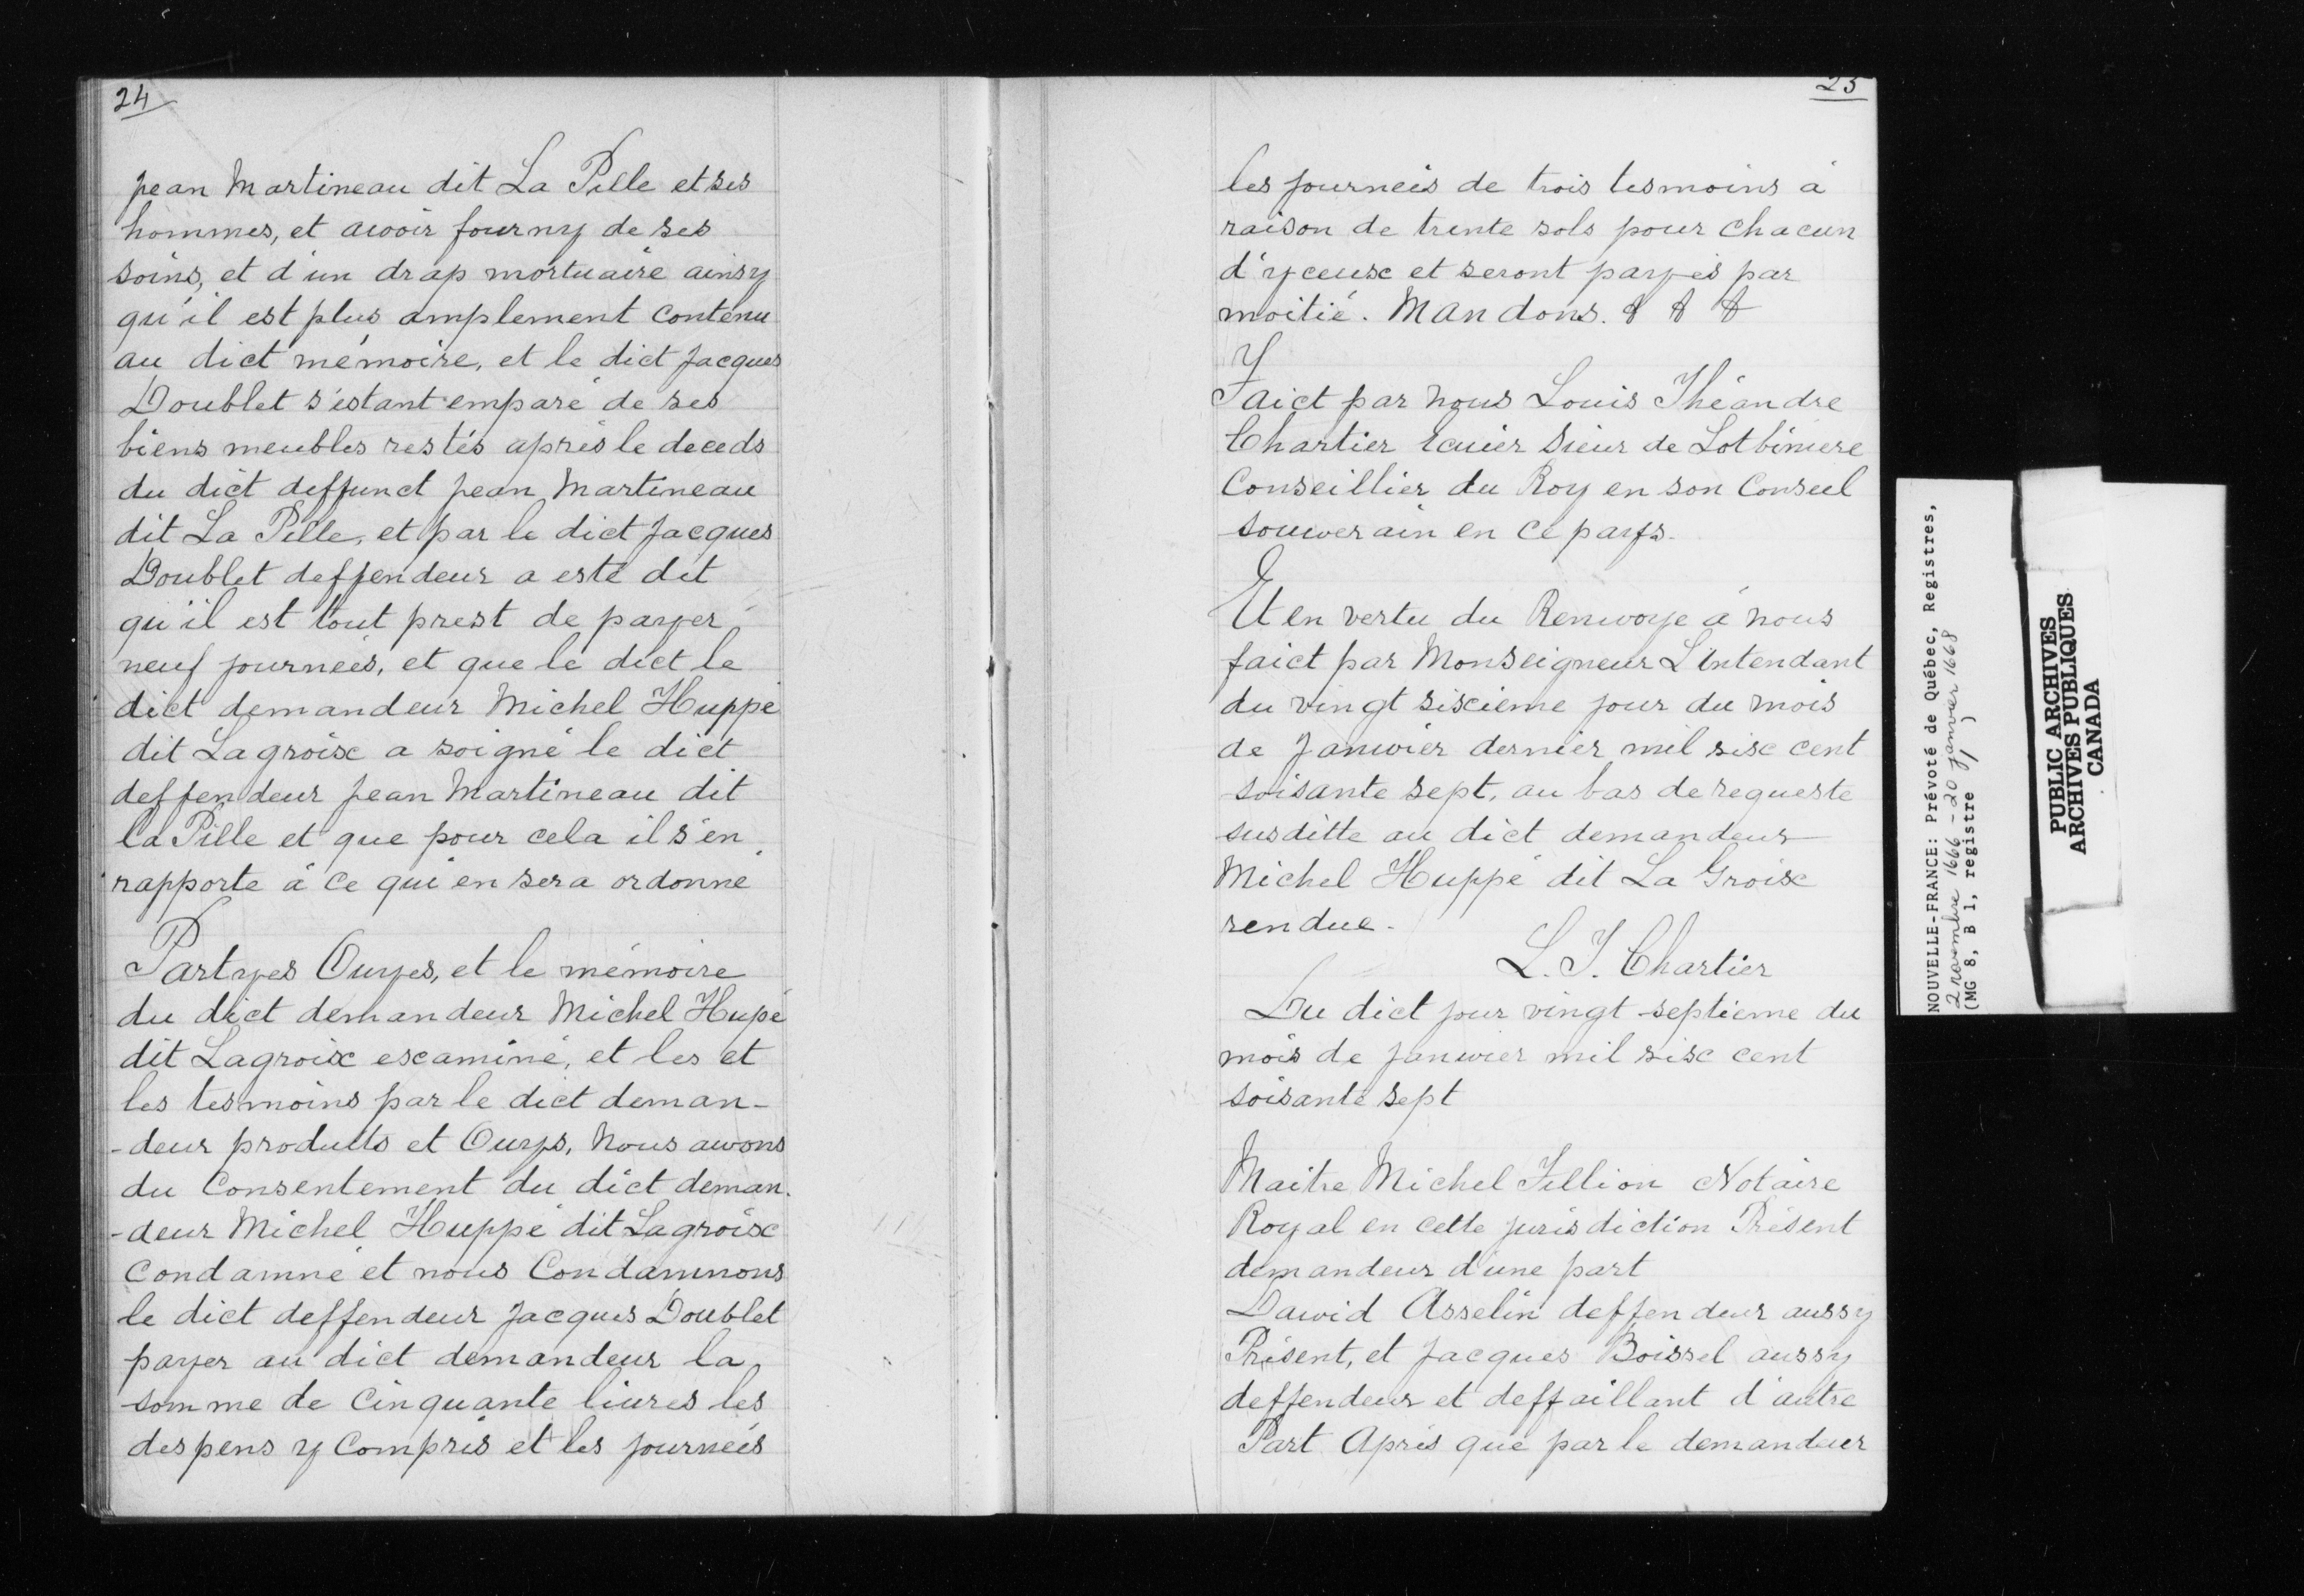 24
jean Martineau dit La Pille et ses
hommes, et avoir fourny de ses
soins, et d'un drap mortuaire ainsy
qu'il est plus amplement contenu
au dict mémoire, et le dict Jacques
Doublet s'estant emparé de ses
biens meubles restés après le deceds
du dict deffunct jean Martineau
dit La Pille, et par le dict Jacques
Doublet deffendeur a esté dit
qu'il est tout prest de payer
neuf journeés, et que le dict le
dict demandeur Michel Huppé
dit Lagroix a soigné le dict
deffendeur jean Martineau dit
la Pille et que pour cela il s'en
rapporte à ce qui en sera ordonné
Partyes Ouyes, et le mémoire
du dict demandeur Michel Hupé
dit Lagroix examiné, et les et
les tesmoins par le dict deman-
-deur produits et Ouys, Nous avons
du Consentement du dict deman.
-deur Michel Huppé dit Lagroix
Condamné et nous Condamnons
le dict deffendeur Jacques Doublet
payer au dict demandeur la
somme de Cinquante livres les
despens y Compris et les journeés
25
les journeés de trois tesmoins à
raison de trente sols pour chacun
d'yceux et seront payés par
moitié. Mandons. & & &
Faict par nous Louis Théandre
Chartier Ecuier Sieur de Lotbiniere
Conseillier du Roy en son Conseil
souverain en ce pays.
Et en vertu du Renvoye à nous
faict par Monseigneur L'intendant
du vingt sixieme jour du mois
de Janvier dernier mil six cent
soisante sept, au bas de requeste
susditte au dict demandeur
Michel Huppé dit La Groix
rendue.
L. T. Chartier
Du dict jour vingt-septieme du
mois de janvier mil six cent
soisante sept
Maitre Michel Fillion Notaire
Royal en cette jurisdiction Présent
demandeur d'une part
David Asselin deffendeur aussy
Présent, et Jacques Boissel aussy
deffendeur et deffaillant d'autre
Part Après que par le demandeur
NOUVELLE-FRANCE: Prévoté de Québec, Registres,
2 novembre 1666 - 20 janvier 1668
(MG 8, B 1, registre 1)
PUBLIC ARCHIVES
ARCHIVES PUBLIQUES
CANADA